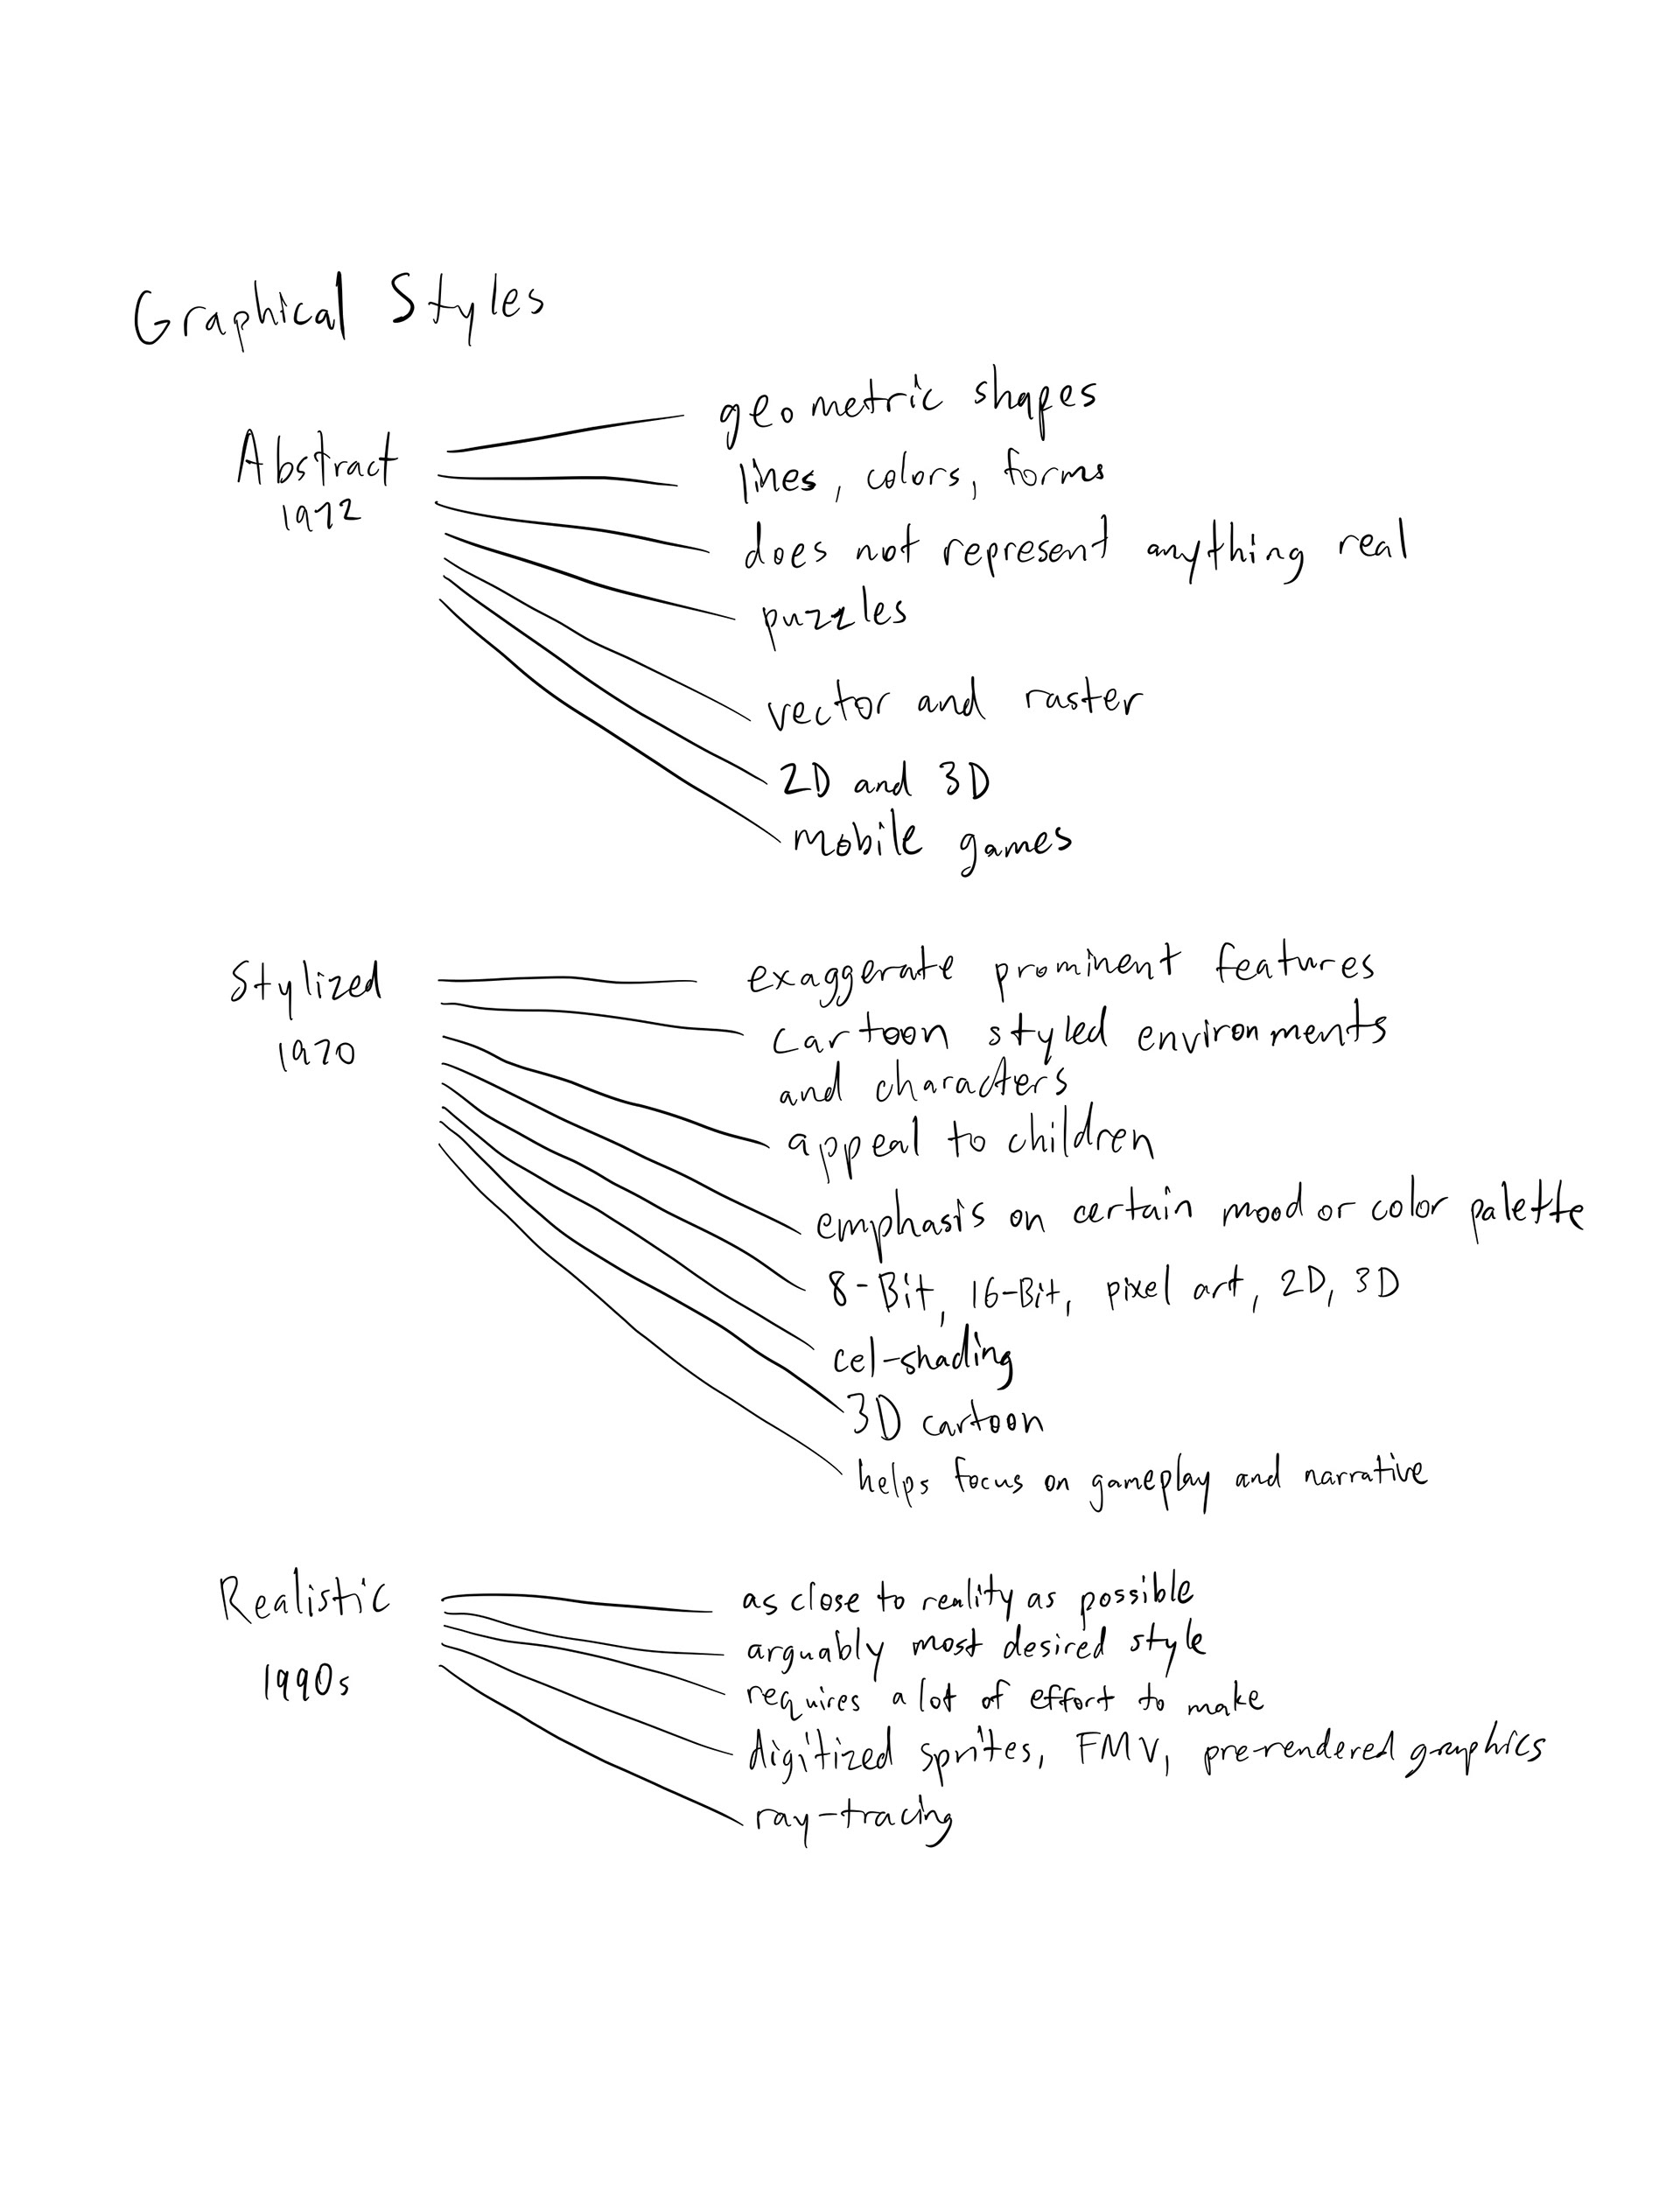 Graphical Styles
Abstract
1972
geometric shapes
lines, colors, forms
does not represent anything real
puzzles
vector and raster
2D and 3D
mobile games
Stylized
1970
exaggerate prominent features
cartoon styled environments
and characters
appeal to children
emphasis on certain mood or color palette
8-Bit, 16-Bit, pixel art, 2D, 3D
cel-shading
3D cartoon
helps focus on gameplay and narrative
Realistic
1990s
as close to reality as possible
arguably most desired style
requires a lot of effort to make
digitized sprites, FMV, pre-rendered graphics
ray-tracing